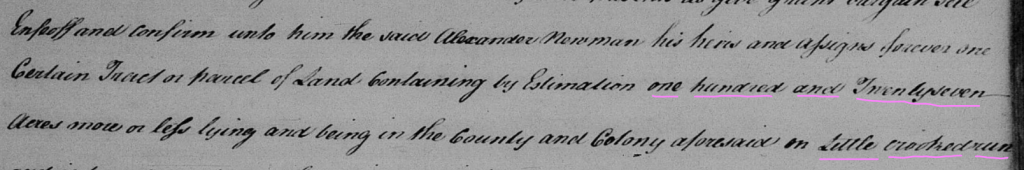 do give grant bargain sell
Enfeoff and Confirm unto him the said Alexander Newman his heirs and assigns forever one
Certain Tract or parcel of Land Containing by Estimation one hundred and Twentyseven
Acres more or less lying and being in the County and Colony aforesaid on Little crooked run